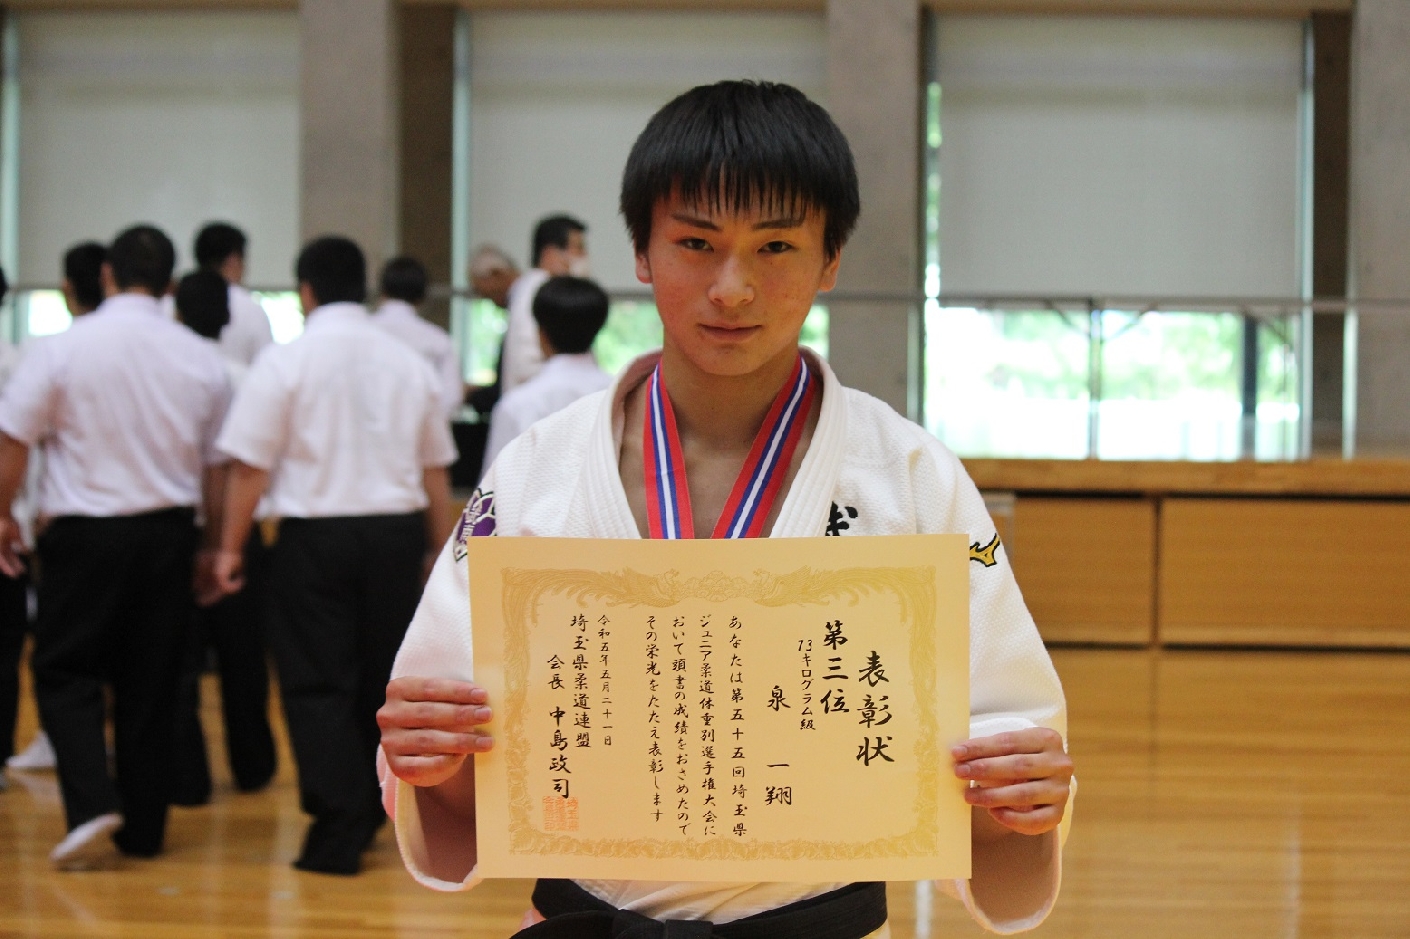 表彰状
第三位
73キログラム級
泉 一翔
あなたは第五十五回埼玉県
ジュニア柔道体重別選手権大会に
おいて頭書の成績をおさめたので
その栄光をたたえ表彰します
令和五年五月二十一日
埼玉県柔道連盟
会長 中島政司